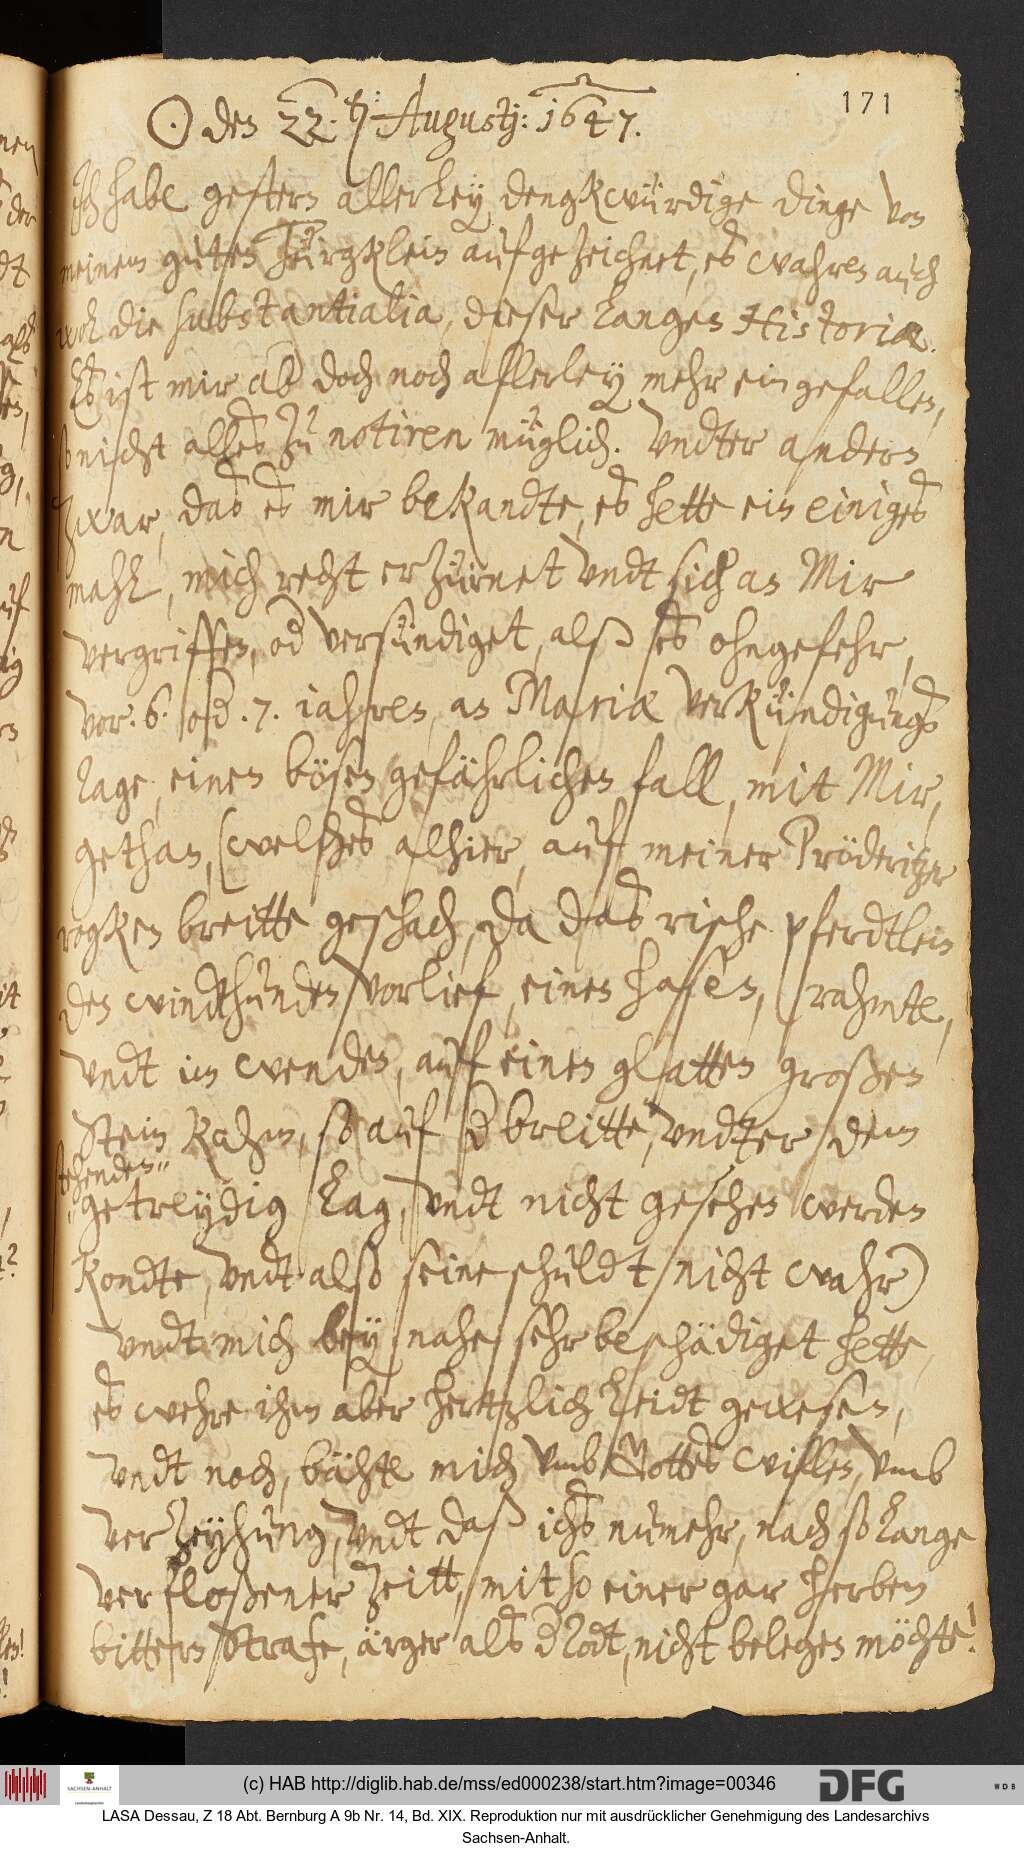 171
☉ den 22. Augustj: 1647.
Ich habe gestern allerley dengkwürdige dinge von
meinem guten Jürgklein aufgezeichnet, es wahren auch
wol die substantialia, dieser langen Historiæ.
Es ist mir ab doch noch allerley mehr eingefallen,
so nicht alles zu notiren müglich. Vndter andern
zwar, das es mir bekandte, es hette ein einiges
mahl, mich recht erzürnet vndt sich an Mir
vergriffen, od versündiget, alß es ohngefehr,
vor .6. od .7. iahren, an Mariæ Verkündigungs
Tage, einen bösen gefährlichen fall, mit Mir,
gethan, (welches alhier, auf meiner Pröderitzer
rogken breitte geschach, da das rische pferdtlein
den windthunden vorlief, einen hasen, rahmte,
vndt im wenden, auf einen glatten großen
Stein kahm, so auf d breitte, vndter dem
stehenden
getreydig lag, vndt nicht gesehen werden
kondte, vndt also seine schuldt nicht wahr)
vndt mich bey nahe sehr beschädiget hette
es wehre ihm aber hertzlich leidt gewesen,
vndt noch, bähte mich vmb Gottes willen, vmb
verzeyhung, vndt daß ichs numehr, nach so langer
verfloßener zeitt, mit so einer gar herben
bittern Strafe, ärger als d Todt, nicht belegen möchte!
(c) HAB http://diglib.hab.de/mss/ed000238/start.htm?image=00346
DFG
WDB
SACHSEN-ANHALT
LASA Dessau, Z 18 Abt. Bernburg A 9b Nr. 14, Bd. XIX. Reproduktion nur mit ausdrücklicher Genehmigung des Landesarchivs
Sachsen-Anhalt.